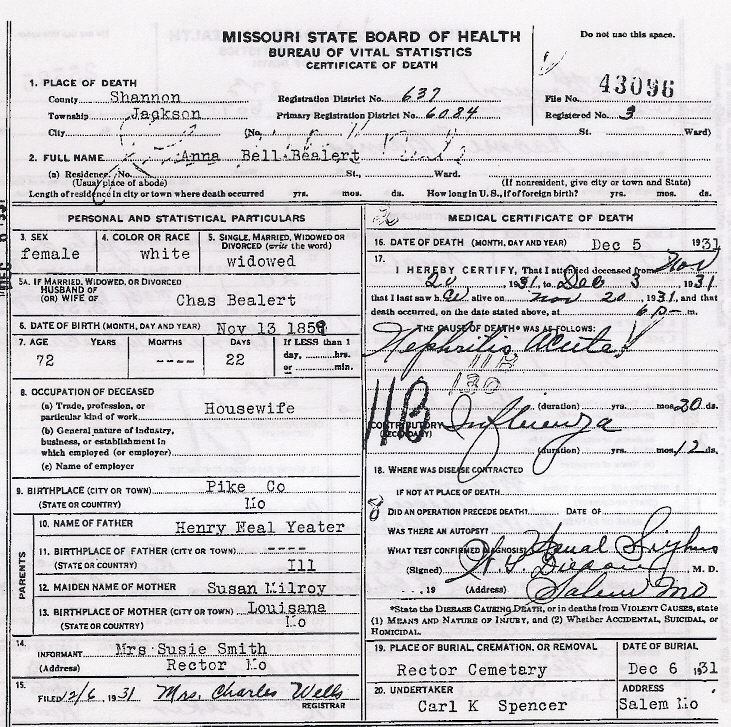 MISSOURI STATE BOARD OF HEALTH
BUREAU OF VITAL STATISTICS
CERTIFICATE OF DEATH
Do not use this space.
1. PLACE OF DEATH
County Shannon Registration District No. 637 File No. 43096
Township Jackson Primary Registration District No. 6084 Registered No. 3
City (No. St. Ward)
2. FULL NAME Anna Bell Bealert
(a) Residence, No. St., Ward.
(Usual place of abode) (If nonresident, give city or town and State)
Length of residence in city or town where death occurred yrs. mos. ds. How long in U.S., if of foreign birth? yrs. mos. ds.
PERSONAL AND STATISTICAL PARTICULARS
3. SEX 4. COLOR OR RACE 5. SINGLE, MARRIED, WIDOWED OR
DIVORCED (write the word)
female white widowed
5A. IF MARRIED, WIDOWED, OR DIVORCED
HUSBAND OF
(OR) WIFE OF Chas Bealert
6. DATE OF BIRTH (MONTH, DAY AND YEAR) Nov 13 1859
7. AGE YEARS MONTHS DAYS If LESS than 1
day, hrs.
72 ---- 22 or min.
8. OCCUPATION OF DECEASED
(a) Trade, profession, or
particular kind of work Housewife
(b) General nature of industry,
business, or establishment in
which employed (or employer)
(c) Name of employer
9. BIRTHPLACE (CITY OR TOWN) Pike Co
(STATE OR COUNTRY) Mo
PARENTS
10. NAME OF FATHER Henry Neal Yeater
11. BIRTHPLACE OF FATHER (CITY OR TOWN) ----
(STATE OR COUNTRY) Ill
12. MAIDEN NAME OF MOTHER Susan Milroy
13. BIRTHPLACE OF MOTHER (CITY OR TOWN) Louisana
(STATE OR COUNTRY) Mo
14.
INFORMANT Mrs Susie Smith
(Address) Rector Mo
15.
FILED 12/6 1931 Mrs. Charles Wells
REGISTRAR
MEDICAL CERTIFICATE OF DEATH
16. DATE OF DEATH (MONTH, DAY AND YEAR) Dec 5 1931
17.
I HEREBY CERTIFY, That I attended deceased from Nov
20, 1931, to Dec 3, 1931
that I last saw h alive on Nov 20, 1931, and that
death occurred, on the date stated above, at 6 p m.
THE CAUSE OF DEATH* WAS AS FOLLOWS:
Nephritis Acute
11B
130
(duration) yrs. mos. 20 ds.
11B
CONTRIBUTORY Influenza
(SECONDARY)
(duration) yrs. mos. 12 ds.
18. WHERE WAS DISEASE CONTRACTED
IF NOT AT PLACE OF DEATH
DID AN OPERATION PRECEDE DEATH? DATE OF
WAS THERE AN AUTOPSY?
WHAT TEST CONFIRMED DIAGNOSIS? Usual
(Signed) M. D.
, 19 (Address) Salem Mo
*State the DISEASE CAUSING DEATH, or in deaths from VIOLENT CAUSES, state
(1) MEANS AND NATURE OF INJURY, and (2) Whether ACCIDENTAL, SUICIDAL, or
HOMICIDAL.
19. PLACE OF BURIAL, CREMATION, OR REMOVAL DATE OF BURIAL
Rector Cemetary Dec 6 1931
20. UNDERTAKER ADDRESS
Carl K Spencer Salem Mo